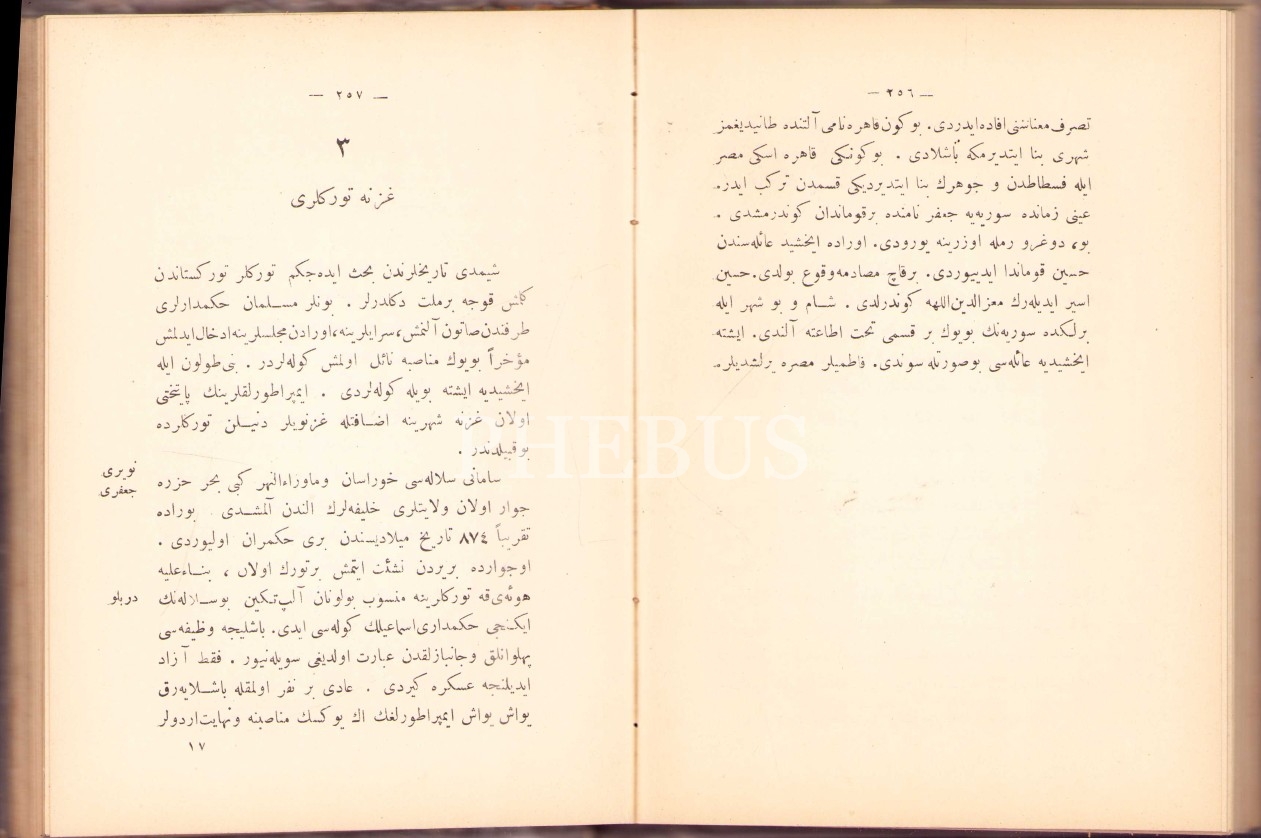 — ٢٥٦ —
تصرف معناسنی افاده ایدردی. بوكون قاهره نامی آلتنده طانیدیغمز
شهری بنا ایتدیرمكه باشلادی . بوكونكی قاهره اسكی مصر
ایله فسطاطدن و جوهرك بنا ایتدیردیكی قسمدن تركب ایدر.
عینی زمانده سوریه‌یه جعفر نامنده برقوماندان كوندرمشدی .
بو، دوغرو رمله اوزرینه یورودی. اوراده ایخشید عائله‌سندن
حسین قوماندا ایدییوردی. برقاچ مصادمه وقوع بولدی. حسین
اسیر ایدیله‌رك معزالدین‌اللهه كوندرلدی . شام و بو شهر ایله
برلكده سوریه‌نك بویوك بر قسمی تحت اطاعته آلندی. ایشته
ایخشیدیه عائله‌سی بوصورتله سوندی. فاطمیلر مصره یرلشدیلر.
— ٢٥٧ —
٣
غزنه توركلری
شیمدی تاریخلرندن بحث ایده‌جكم توركلر توركستاندن
كلمش قوجه برملت دكلدرلر . بونلر مسلمان حكمدارلری
طرفندن صاتون آلنمش، سرایلرینه، اورادن مجلسلرینه ادخال ایدلمش
مؤخراً بویوك مناصبه نائل اولمش كوله‌لردر . بنی طولون ایله
ایخشیدیه ایشته بویله كوله‌لردی . ایمپراطورلقلرینك پایتختی
اولان غزنه شهرینه اضافتله غزنویلر دنیلن توركلرده
بوقبیلدندر .
سامانی سلاله‌سی خوراسان وماوراءالنهر كبی بحر خزره
نویری
جعفری
جوار اولان ولایتلری خلیفه‌لرك الندن آلمشدی بوراده
تقریباً ٨٧٤ تاریخ میلادیسندن بری حكمران اولیوردی .
اوجوارده بریردن نشئت ایتمش برتورك اولان ، بناءعلیه
توركلرینه منسوب بولونان آلپ‌تكین بوسلاله‌نك
دربلو
ایكنجی حكمداری اسماعیلك كوله‌سی ایدی. باشلیجه وظیفه‌سی
پهلوانلق وجانبازلقدن عبارت اولدیغی سویله‌نیور . فقط آزاد
ایدیلنجه عسكره كیردی . عادی بر نفر اولمقله باشلایه‌رق
یواش یواش ایمپراطورلغك اك یوكسك مناصبنه ونهایت اردولر
١٧
PHEBUS